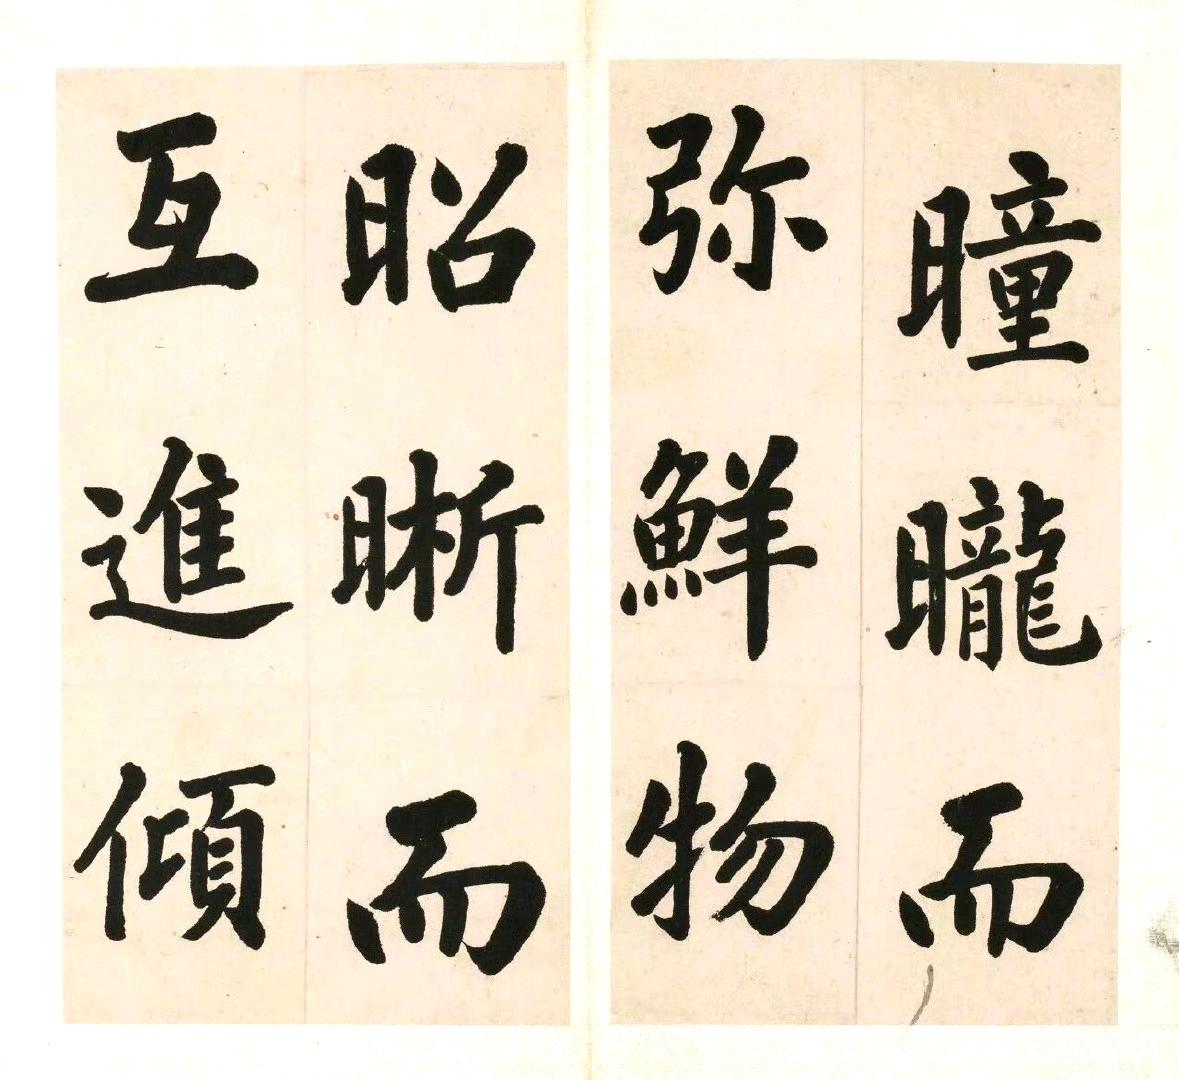 曈曨而
弥鮮物
昭晣而
互進傾